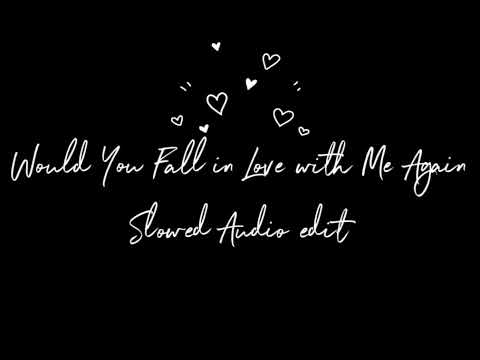 Would You Fall in Love with Me Again
Slowed Audio edit